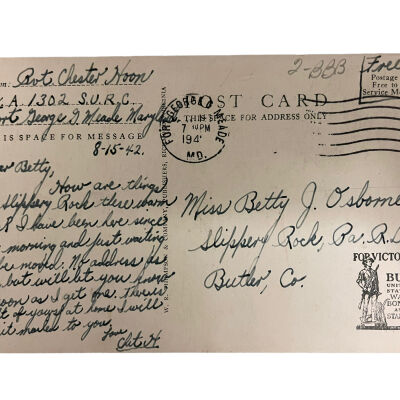 Pvt Chester Hoon
A. 1302 S.U.R.C.
ort George G. Meade Maryl
HIS SPACE FOR MESSAGE
8-15-42.
er Betty,
How are things
Slippery Rock these
& I have been here since
morning and just waiting
be moved. My address is
but will let you know
soon as I get one. There's
t of yours at home I will
it mailed to you.
Love
Chet H.
2-BBB
Free
Postage
Free to
Service M
POST CARD
THIS SPACE FOR ADDRESS ONLY
FORT GEORGE G MEADE
7 PM
194
MD.
Miss Betty J. Osborne
Slippery Rock, Pa. R.D.
Butler, Co.
FOR VICTO
BU
UNI
STA
WA
BON
AN
STA